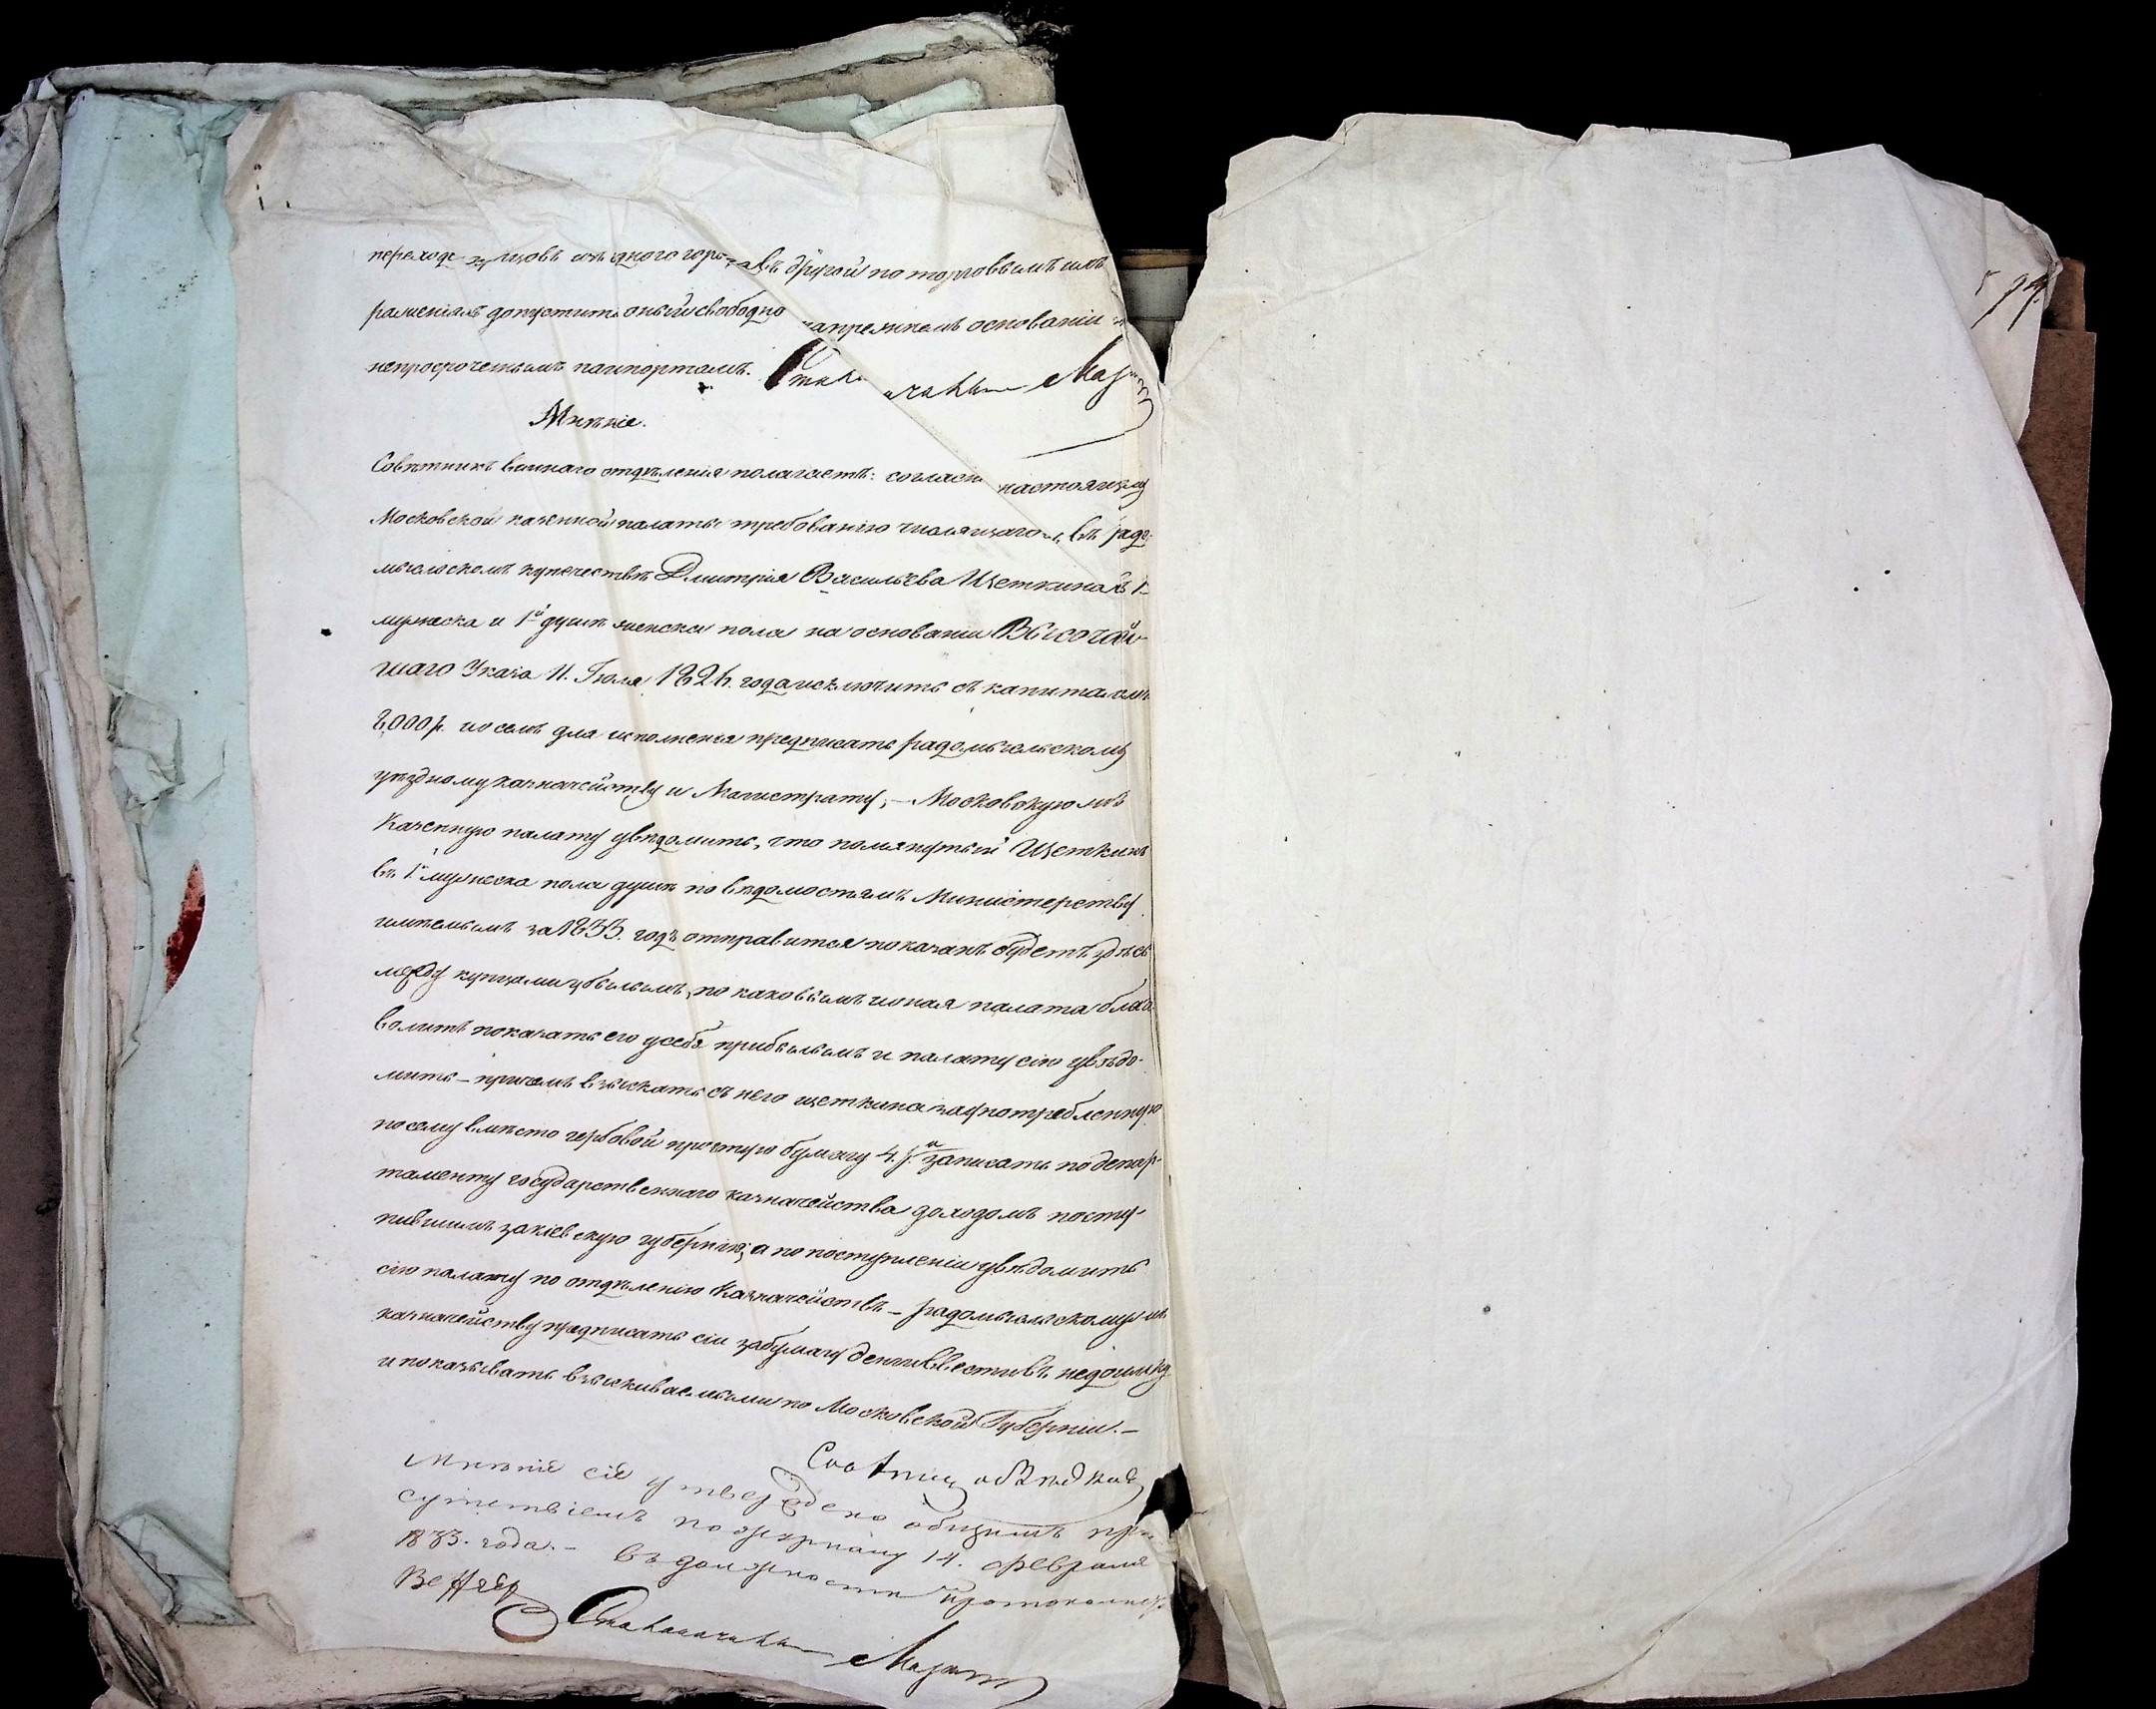 переходе купцовъ изъ одного города въ другой по торговымъ ихъ
допустить оный свободно на прежнемъ основаніи
непросроченнымъ паспортамъ. Столоначальн
Мнѣніе.
Совѣтникъ виннаго отдѣленія полагаетъ: согласно настоящему
Московской казенной палаты требованію числящагося въ радо-
мысльскомъ купечествѣ Дмитрія Васильева Щеткина въ 1
мужеска и 1й душѣ женска пола на основаніи Высочай-
шаго Указа 11. Іюля 182 . года исключить съ капиталомъ
8,000 р. и о семъ для исполненія предписать радомысльскому
уѣздному казначейству и Магистрату, – Московскую жъ
Казенную палату увѣдомить, что помянутый Щеткинъ
въ 1й мужеска пола душѣ по вѣдомостямъ Министерству
имѣемымъ за 1833. годъ отправится показанъ будетъ здѣсь
между купцами убылымъ, по каковымъ и оная палата благо
волитъ показать его у себя прибылымъ и палату сію увѣдо-
мить – причемъ взыскать съ него щеткина за употребленную
по сему вмѣсто гербовой простую бумагу 4. р. и записать по депар-
таменту государственнаго казначейства доходомъ посту-
пившимъ за кіевскую губернію, а по поступленіи увѣдомить
сію палату по отдѣленію Казначействъ – радомысльскому жъ
казначейству предписать сіи за бумагу деньги ввести въ недоимку
и показывать взыскиваемыми по Московской Губерніи. –
Мнѣніе сіе утверждено общимъ при-
сутствіемъ по журналу 14. февраля
1833. года. – въ должности протоколиста
Столоначальн